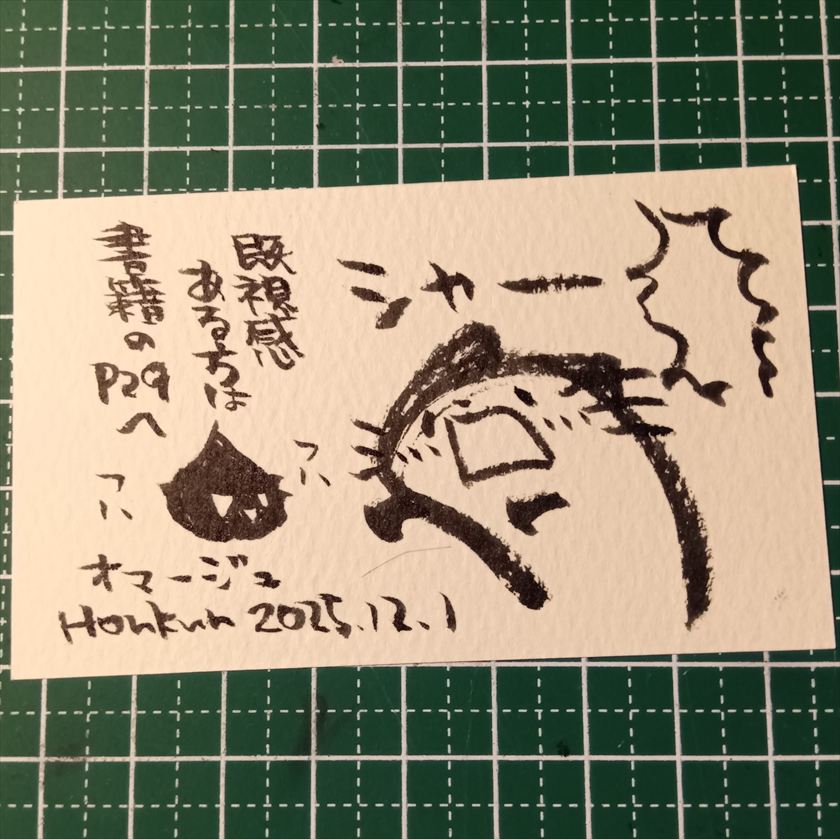 シャー
既視感
ある方は
書籍の
P29へ
オマージュ
Honkun 2025.12.1